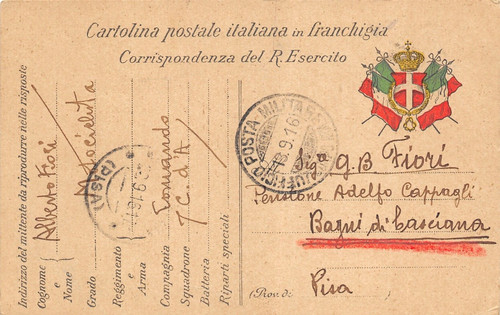 Cartolina postale italiana in franchigia
Corrispondenza del R. Esercito
Indirizzo del mittente da riprodurre nelle risposte
Cognome e Nome Alberto Fiori
Grado Motociclista
Reggimento e Arma
Compagnia Comando
Squadrone 7 C. d'A
Batteria
Riparti speciali
POSTA MILITARE
UFFICIO
13.9.16
(PISA)
9.16
Sig.a G.B Fiori
Pensione Adelfo Cappagli
Bagni di Casciana
(Prov. di
Pisa